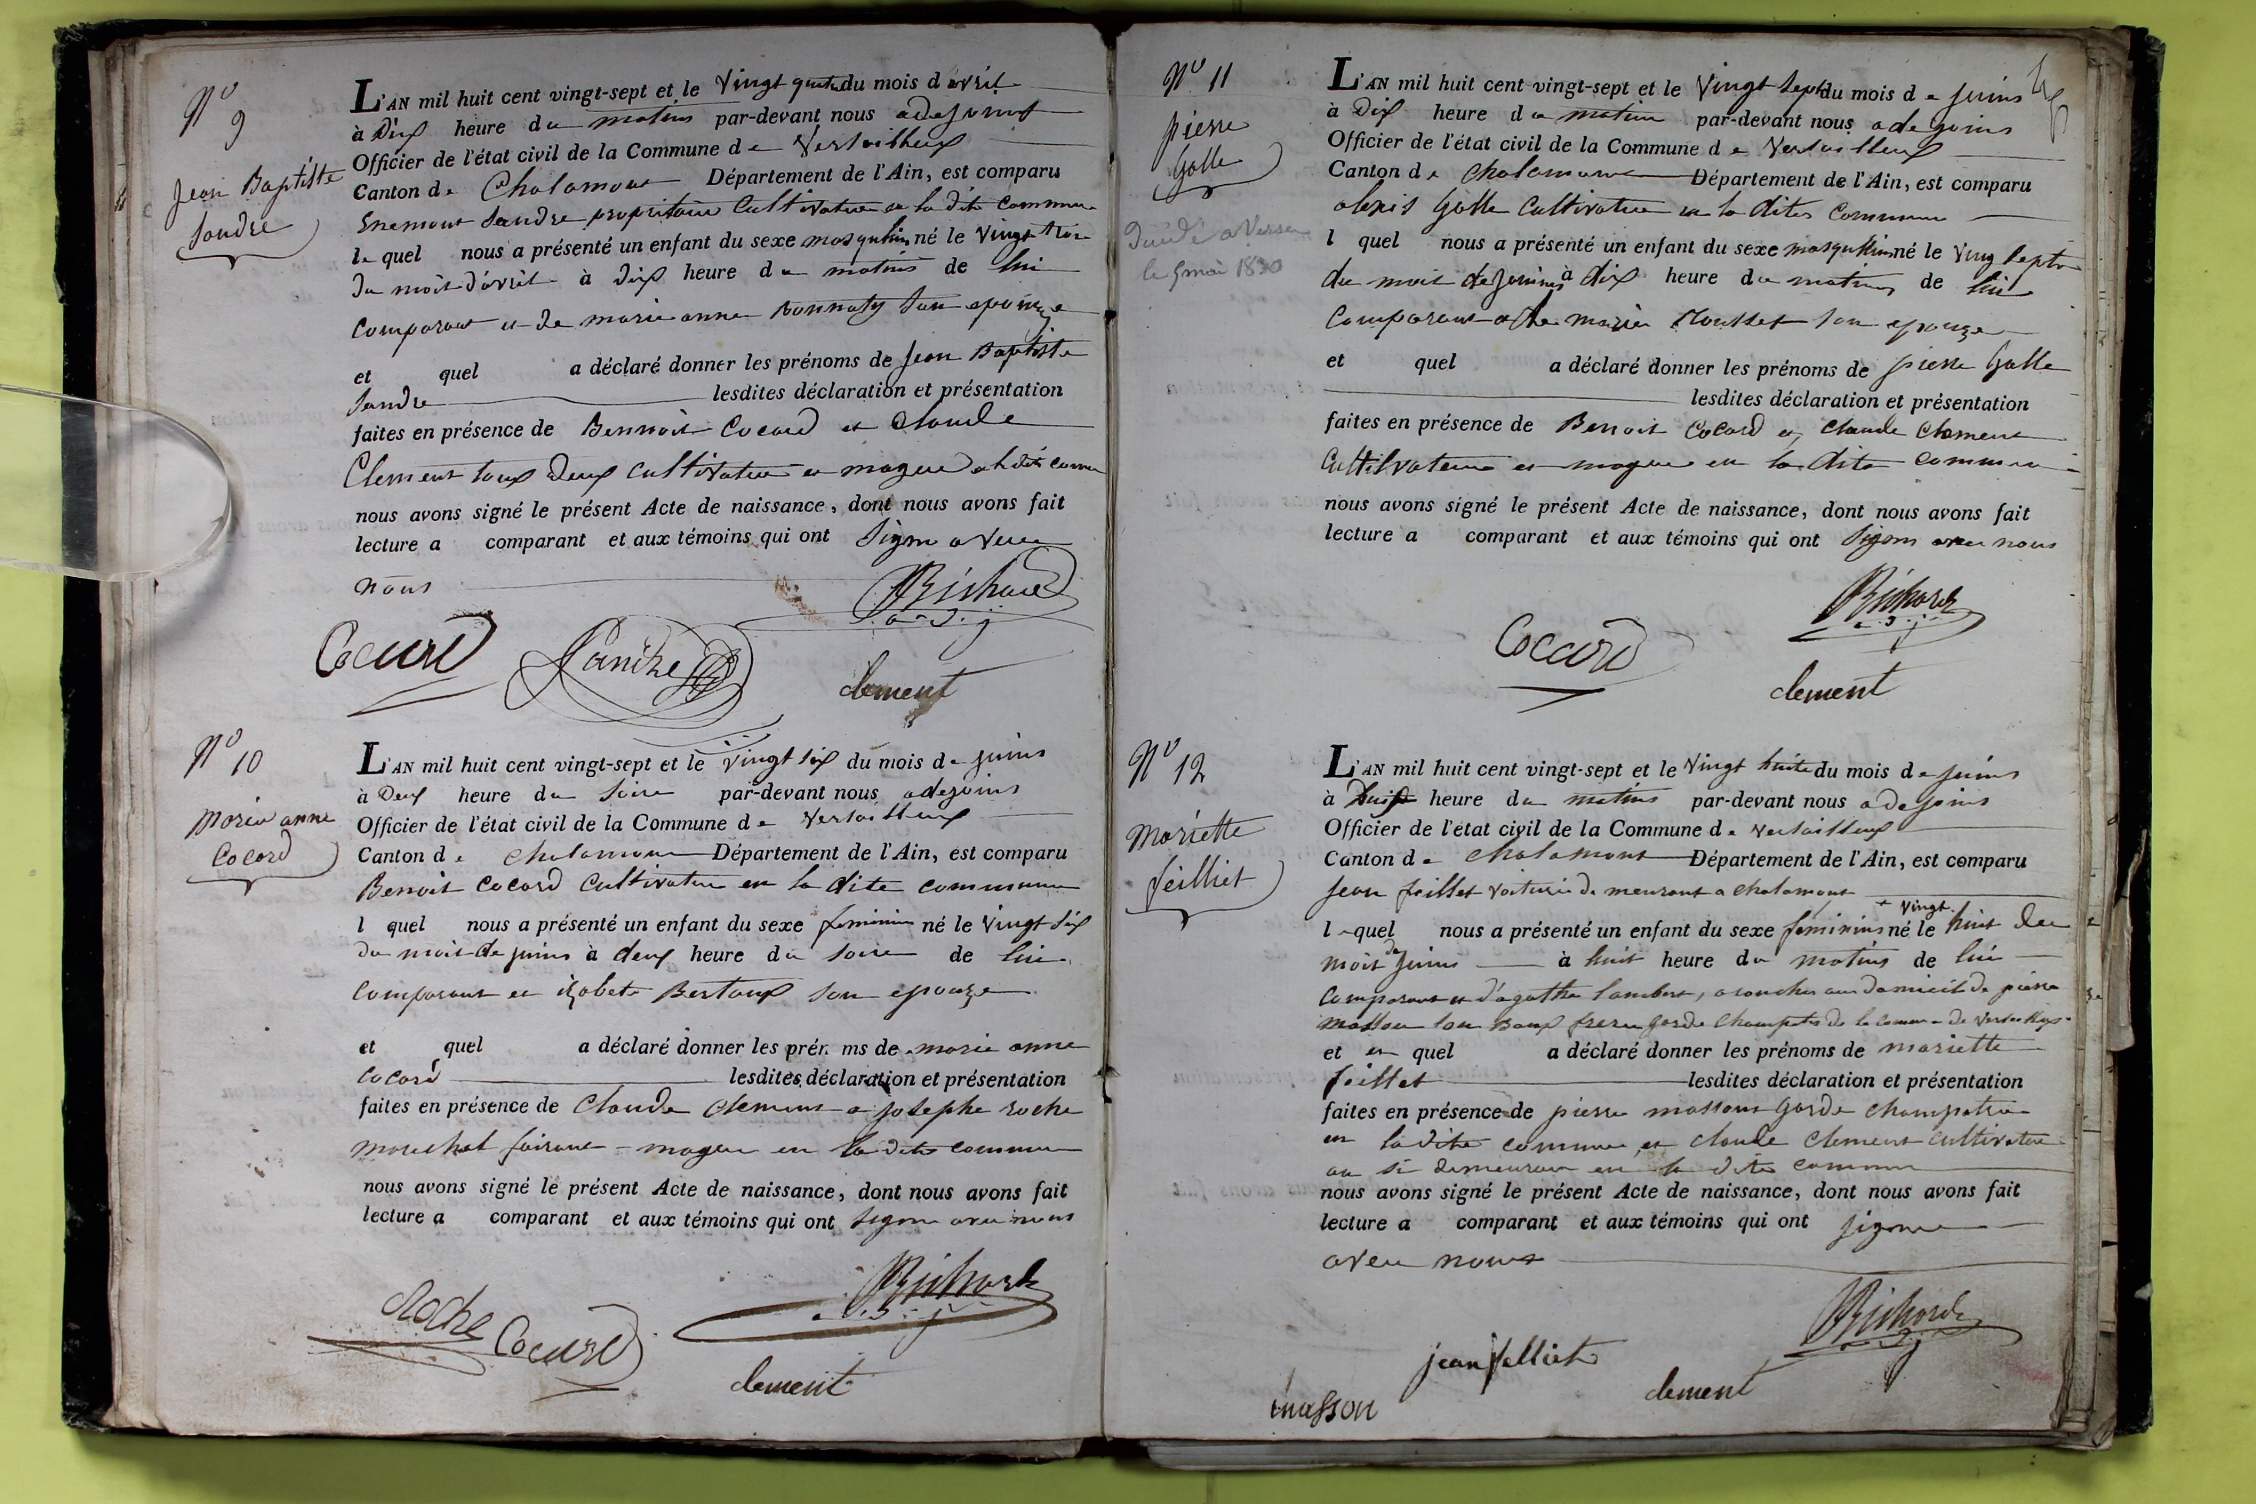 N° 9
Jean Baptiste
Sandre
L'AN mil huit cent vingt-sept et le Vingt quatre du mois d avril
à Dix heure du matins par-devant nous adejoint
Officier de l'état civil de la Commune d e Versailleux
Canton d e Chalamont Département de l'Ain, est comparu
Enemont Sandre propritaire Cultivateur en la dite commune
le quel nous a présenté un enfant du sexe masqulin né le Vingt trois
du mois d'avril à Dix heure du matins de lui
comparant et de marie anne Bonnaty son epouze
et quel a déclaré donner les prénoms de Jean Baptiste
Sandre lesdites déclaration et présentation
faites en présence de Bennoit Cocard et Claude
Clement tous deux cultivateur et mageur a la dite comm
nous avons signé le présent Acte de naissance, dont nous avons fait
lecture a comparant et aux témoins qui ont Signe avec
nous
Richard
a.d.j
Cocard Sandre clement
N° 10
Marie anne
Cocard
L'AN mil huit cent vingt-sept et le vingt six du mois de juins
à Deux heure du Soire par-devant nous adejoins
Officier de l'état civil de la Commune d e Versailleux
Canton d e Chalamont Département de l'Ain, est comparu
Benoit Cocard Cultivateur en la dite commune
l quel nous a présenté un enfant du sexe feminin né le Vingt Six
du mois de juins à deux heure du Soire de lui
comparant et izabete Bertoux son epouze
et quel a déclaré donner les prén ms de marie anne
Cocard lesdites déclaration et présentation
faites en présence de Claude Clement a josephe roche
marechal fairant mageur en la dite commune
nous avons signé le présent Acte de naissance, dont nous avons fait
lecture a comparant et aux témoins qui ont signe avec nous
Richard
a.d.j
Roche Cocard
clement
N° 11
pierre
Golle
le 5 mai 1830
L'AN mil huit cent vingt-sept et le Vingt Sept du mois d e juins
à Dix heure du matin par-devant nous adejoins
Officier de l'état civil de la Commune d e Versailleux
Canton d e Chalamont Département de l'Ain, est comparu
alexis Golle Cultivateur en la dites commune
l quel nous a présenté un enfant du sexe masqulin né le Ving Septe
du mois de Juins à dix heure du matins de lui
Comparant a de marie Mousset son epouze
et quel a déclaré donner les prénoms de pierre Golle
lesdites déclaration et présentation
faites en présence de Benoit Cocard et Claude Clement
Cultilvateur et mageur en la dite commune
nous avons signé le présent Acte de naissance, dont nous avons fait
lecture a comparant et aux témoins qui ont Signe avec nous
Richard
a.d.j
Cocard
clement
N° 12
Mariette
feilliet
L'AN mil huit cent vingt-sept et le Vingt huite du mois d e juins
à heure du matins par-devant nous adejoins
Officier de l'état civil de la Commune d e Versailleux
Canton d e Chalamont Département de l'Ain, est comparu
Jean feillet voiturié demeurant a chalamont
vingt
l e quel nous a présenté un enfant du sexe feminins né le huit du
mois de Juins à huit heure du matins de lui
comparant et d'agathe lambert, acoucher au domicil de pierre
masson son Baux frere garde champetre de la commune de Versailleux
et le quel a déclaré donner les prénoms de mariette
feillet lesdites déclaration et présentation
faites en présence de pierre massont garde champatre
en la dite commune et claude Clement cultivateur
au si demeurant en la dite commune
nous avons signé le présent Acte de naissance, dont nous avons fait
lecture a comparant et aux témoins qui ont signe
avec nous
Richard
a.d.j
jean felliet
clement
masson